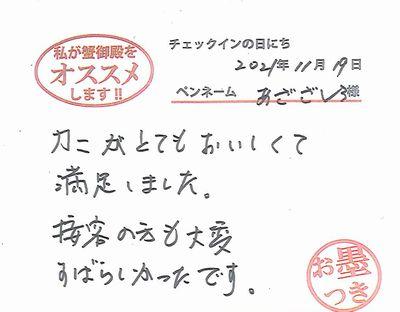 私が蟹御殿を
オススメ
します!!
チェックインの日にち
2021年11月19日
ペンネーム あざざしろ様
カニがとてもおいしくて
満足しました。
接客の方も大変
すばらしいかったです。
お墨
つき